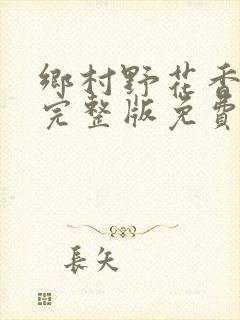 鄉村野花香
完整版免費
長矢